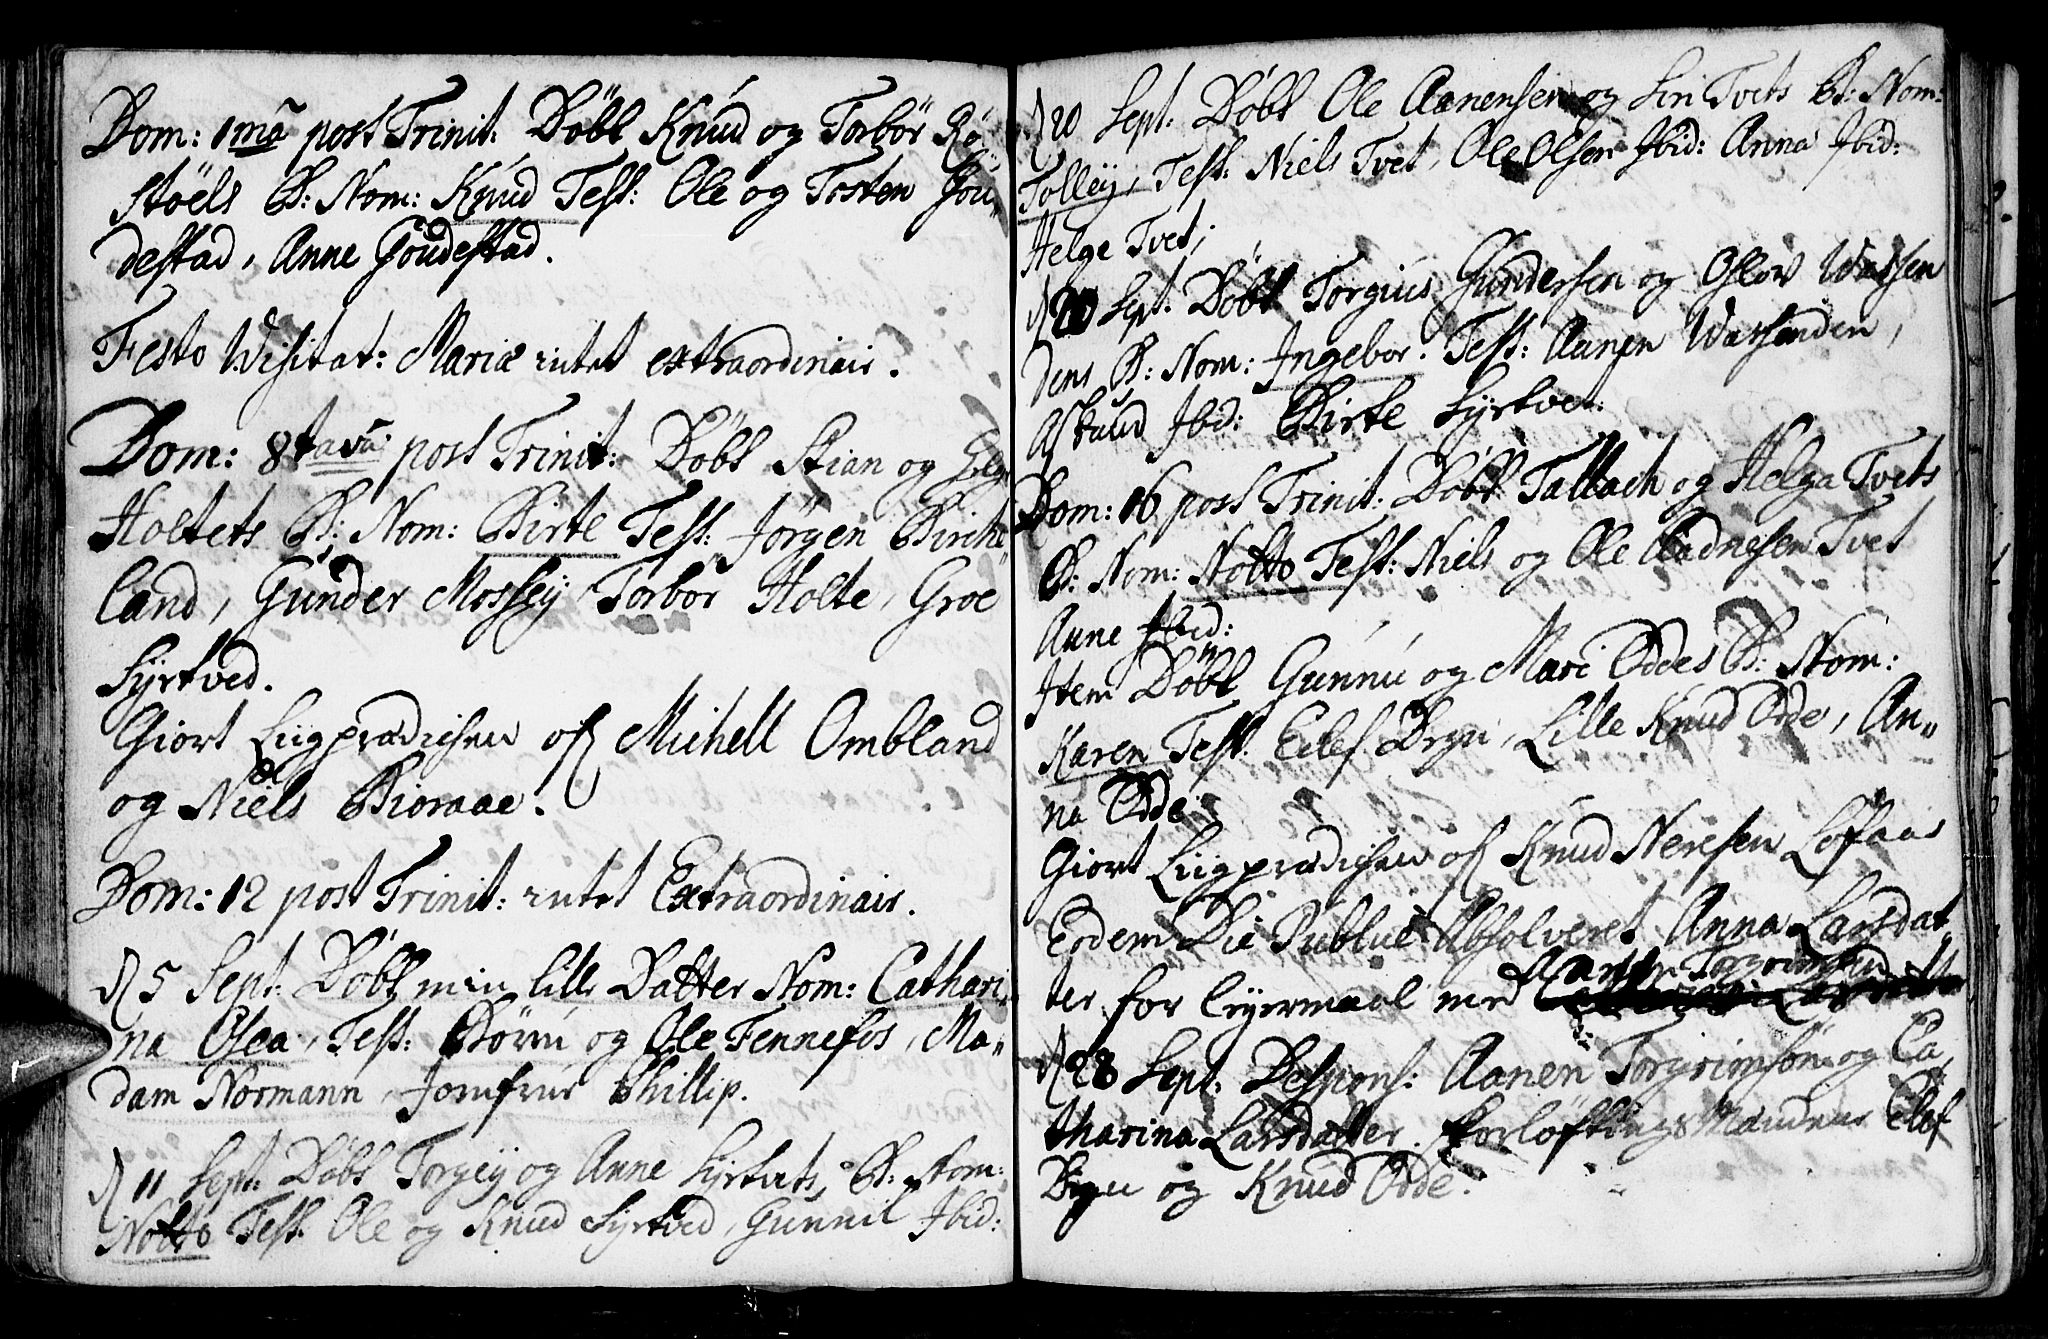 Dom: 1mâ post Trinit: Döbt Knud og Torbör Rö„
stöels B: Nom: Knud Test: Ole og Tosten Gou„
destad, Anne Goudestad.
Festo Visitat: Mariæ intet extraordinair.
Dom: 8tavâ post Trinit: Döbt Stian og
Holtets B: Nom: Birte Test: Jörgen Birche
land, Gunder Mossey, Torbör Holte, Groe
Syrtved.
Giort Liigprædichen of Michell Ombland
og Niels Bioraae.
Dom: 12 post Trinit: intet Extraordinair.
d 5 Sept: Döbt min lille Datter Nom: Cathari„
na Olea, Test: og Ole Fennefos, Ma„
dam Normann, Jomfrue Phillip.
d 11 Sept: Döbt Torgey og Anne Syrtvets, B: Nom:
Notto Test: Ole og Knud Syrtved, Gunnil Ibid:
d 20 Sept: Döbt Ole Aanensen og Siri Tvets B: Nom:
Tolley, Test: Niels Tvet, Ole Olsen Ibid: Anna Ibid:
Helge Tvet;
d 20 Sept: Döbt Torgius Gundersen og Oslov Wassen
dens B: Nom: Ingebor. Test: Aanen Wassenden,
Aslaud Ibid: Birte Syrtvet.
Dom: 16 post Trinit: Döbt Tallach og Helga Tvets
B: Nom: Notto Test: Niels og Ole Aadnesen Tvet
Anne Ibid:
Item Döbt Gunnu og Mari Oddes B: Nom:
Karen Test: Eilef Bryn, Lille Knud Odde, An„
na Odde
Giort Liigprædichen of Knud Neresen Lofaas
Eodem Die Publicè Absolveret Anna Larsdat„
ter for leyermaal med Aanen Torgrimsen
d 28 Sept: Despons: Aanen Torgrimsön og Ca„
tharina Larsdatter. Forlöftings Mændene Elef
Bryn og Knud Odde.